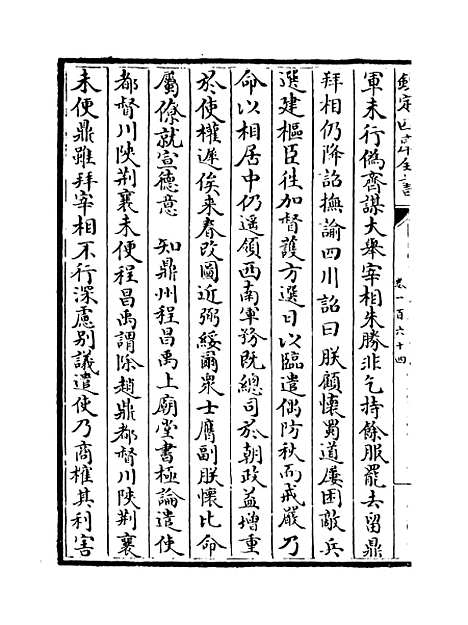 欽定四庫全書
卷一百六十四
軍未行偽齊謀大舉宰相朱勝非乞持餘服罷去留鼎
拜相仍降詔撫諭四川詔曰朕顧懷蜀道屢困敵兵
選建樞臣往加督護方選日以臨遣偶防秋而戒嚴乃
命以相居中仍遥領西南軍務既總司於朝政益增重
於使權遲俟来春改圖近弼綏爾衆士膺副朕懷比命
屬僚就宣德意　知鼎州程昌禹上廟堂書極論遣使
都督川陜荆襄未便程昌禹謂除趙鼎都督川陜荆襄
未便鼎雖拜宰相不行深慮别議遣使乃商榷其利害